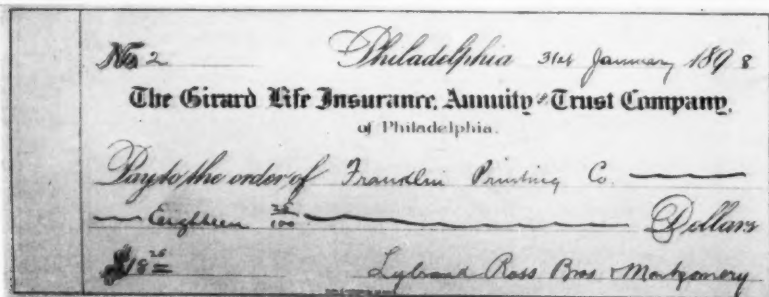 No 2 Philadelphia 31st January 1898
The Girard Life Insurance, Annuity and Trust Company,
of Philadelphia.
Pay to the order of Franklin Printing Co.
Eighteen 25/100 Dollars
$18 25
Lybrand Ross Bros & Montgomery